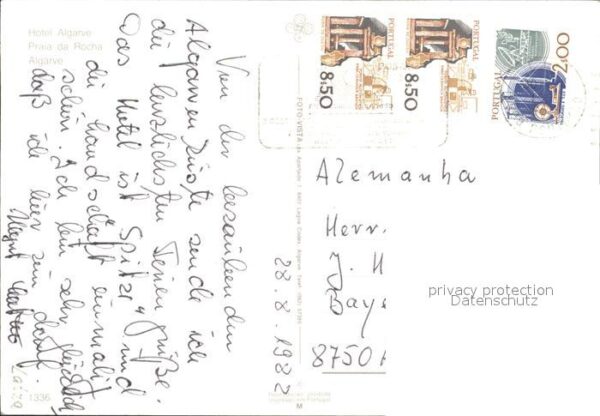 Hotel Algarve
Praia da Rocha
Algarve
Von der bezaubernden
Algarven Küste sende ich
die herzlichsten Ferien grüße.
Das Hotel ist "Spitze" und
die Landschaft einmalig
schön. Ich bin sehr glücklich
daß ich hier sein darf.
28.8.1982
1336
FOTO-VISTA
M
PORTUGAL
8$50
PORTUGAL
8$50
PORTUGAL
2$00
Alemanha
Herr
J. H
Baye
8750 A
privacy protection
Datenschutz